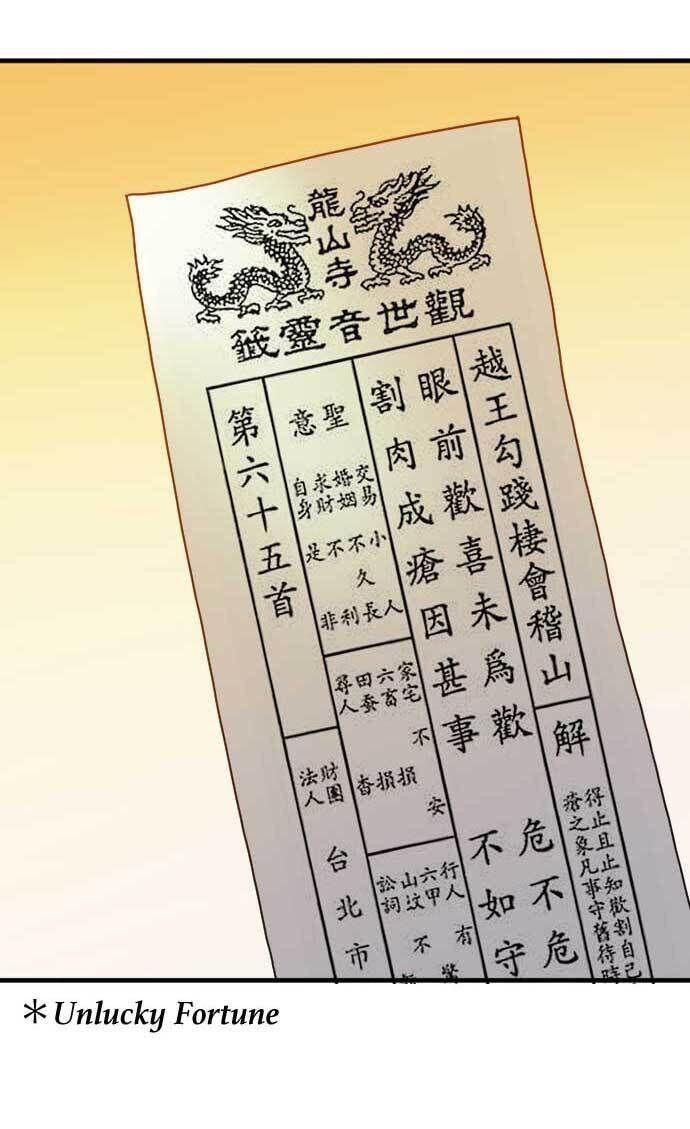 龍山寺
觀世音靈籤
越王勾踐棲會稽山
解
得止且止知歡割自己
瘡之象凡事守舊待時
眼前歡喜未爲歡
危不危
割肉成瘡因甚事
不如守
聖意
交易 小人
婚姻 不久長
求財 不利
自身 是非
家宅 不安
六畜 損
田蚕 損
尋人 杳
行人 有
六甲
山坟 不
訟詞
第六十五首
財團法人
台北市
＊Unlucky Fortune